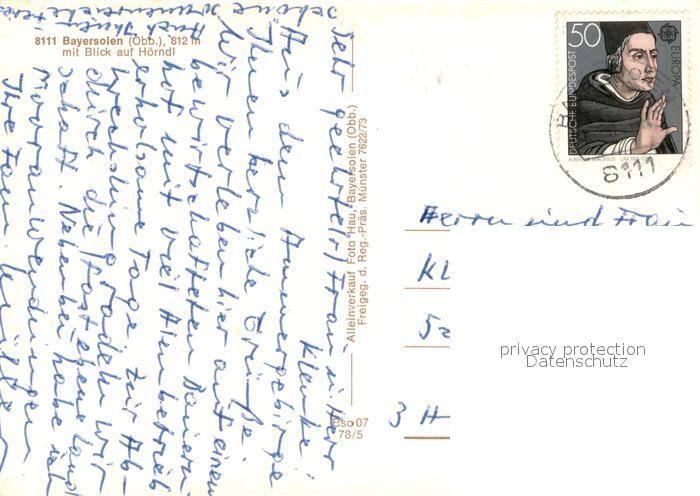 8111 Bayersoien (Obb.), 812 m
mit Blick auf Hörndl
Sehr geehrte(r) Frau u. Herr
Klenke
Aus dem Ammergebirge
Ihnen herzliche Grüße.
Wir verleben hier auf einem
bewirtschafteten Bauern-
hof mit viel Almbetrieb
erholsame Tage. Zur Ab-
wechslung radeln wir
durch die
schaft. Nebenbei habe ich
Mooranwendungen
Ihre Fam.
Auch Ihnen
schöne
Alleinverkauf Foto Hau, Bayersoien (Obb.)
Freigeg. d. Reg.-Präs. Münster 7622/73
Bso 07
78/5
50
DEUTSCHE BUNDESPOST
EUROPA
ALBERTUS MAGNUS
8111
Herrn und Frau
Kl
5
3 H
privacy protection
Datenschutz